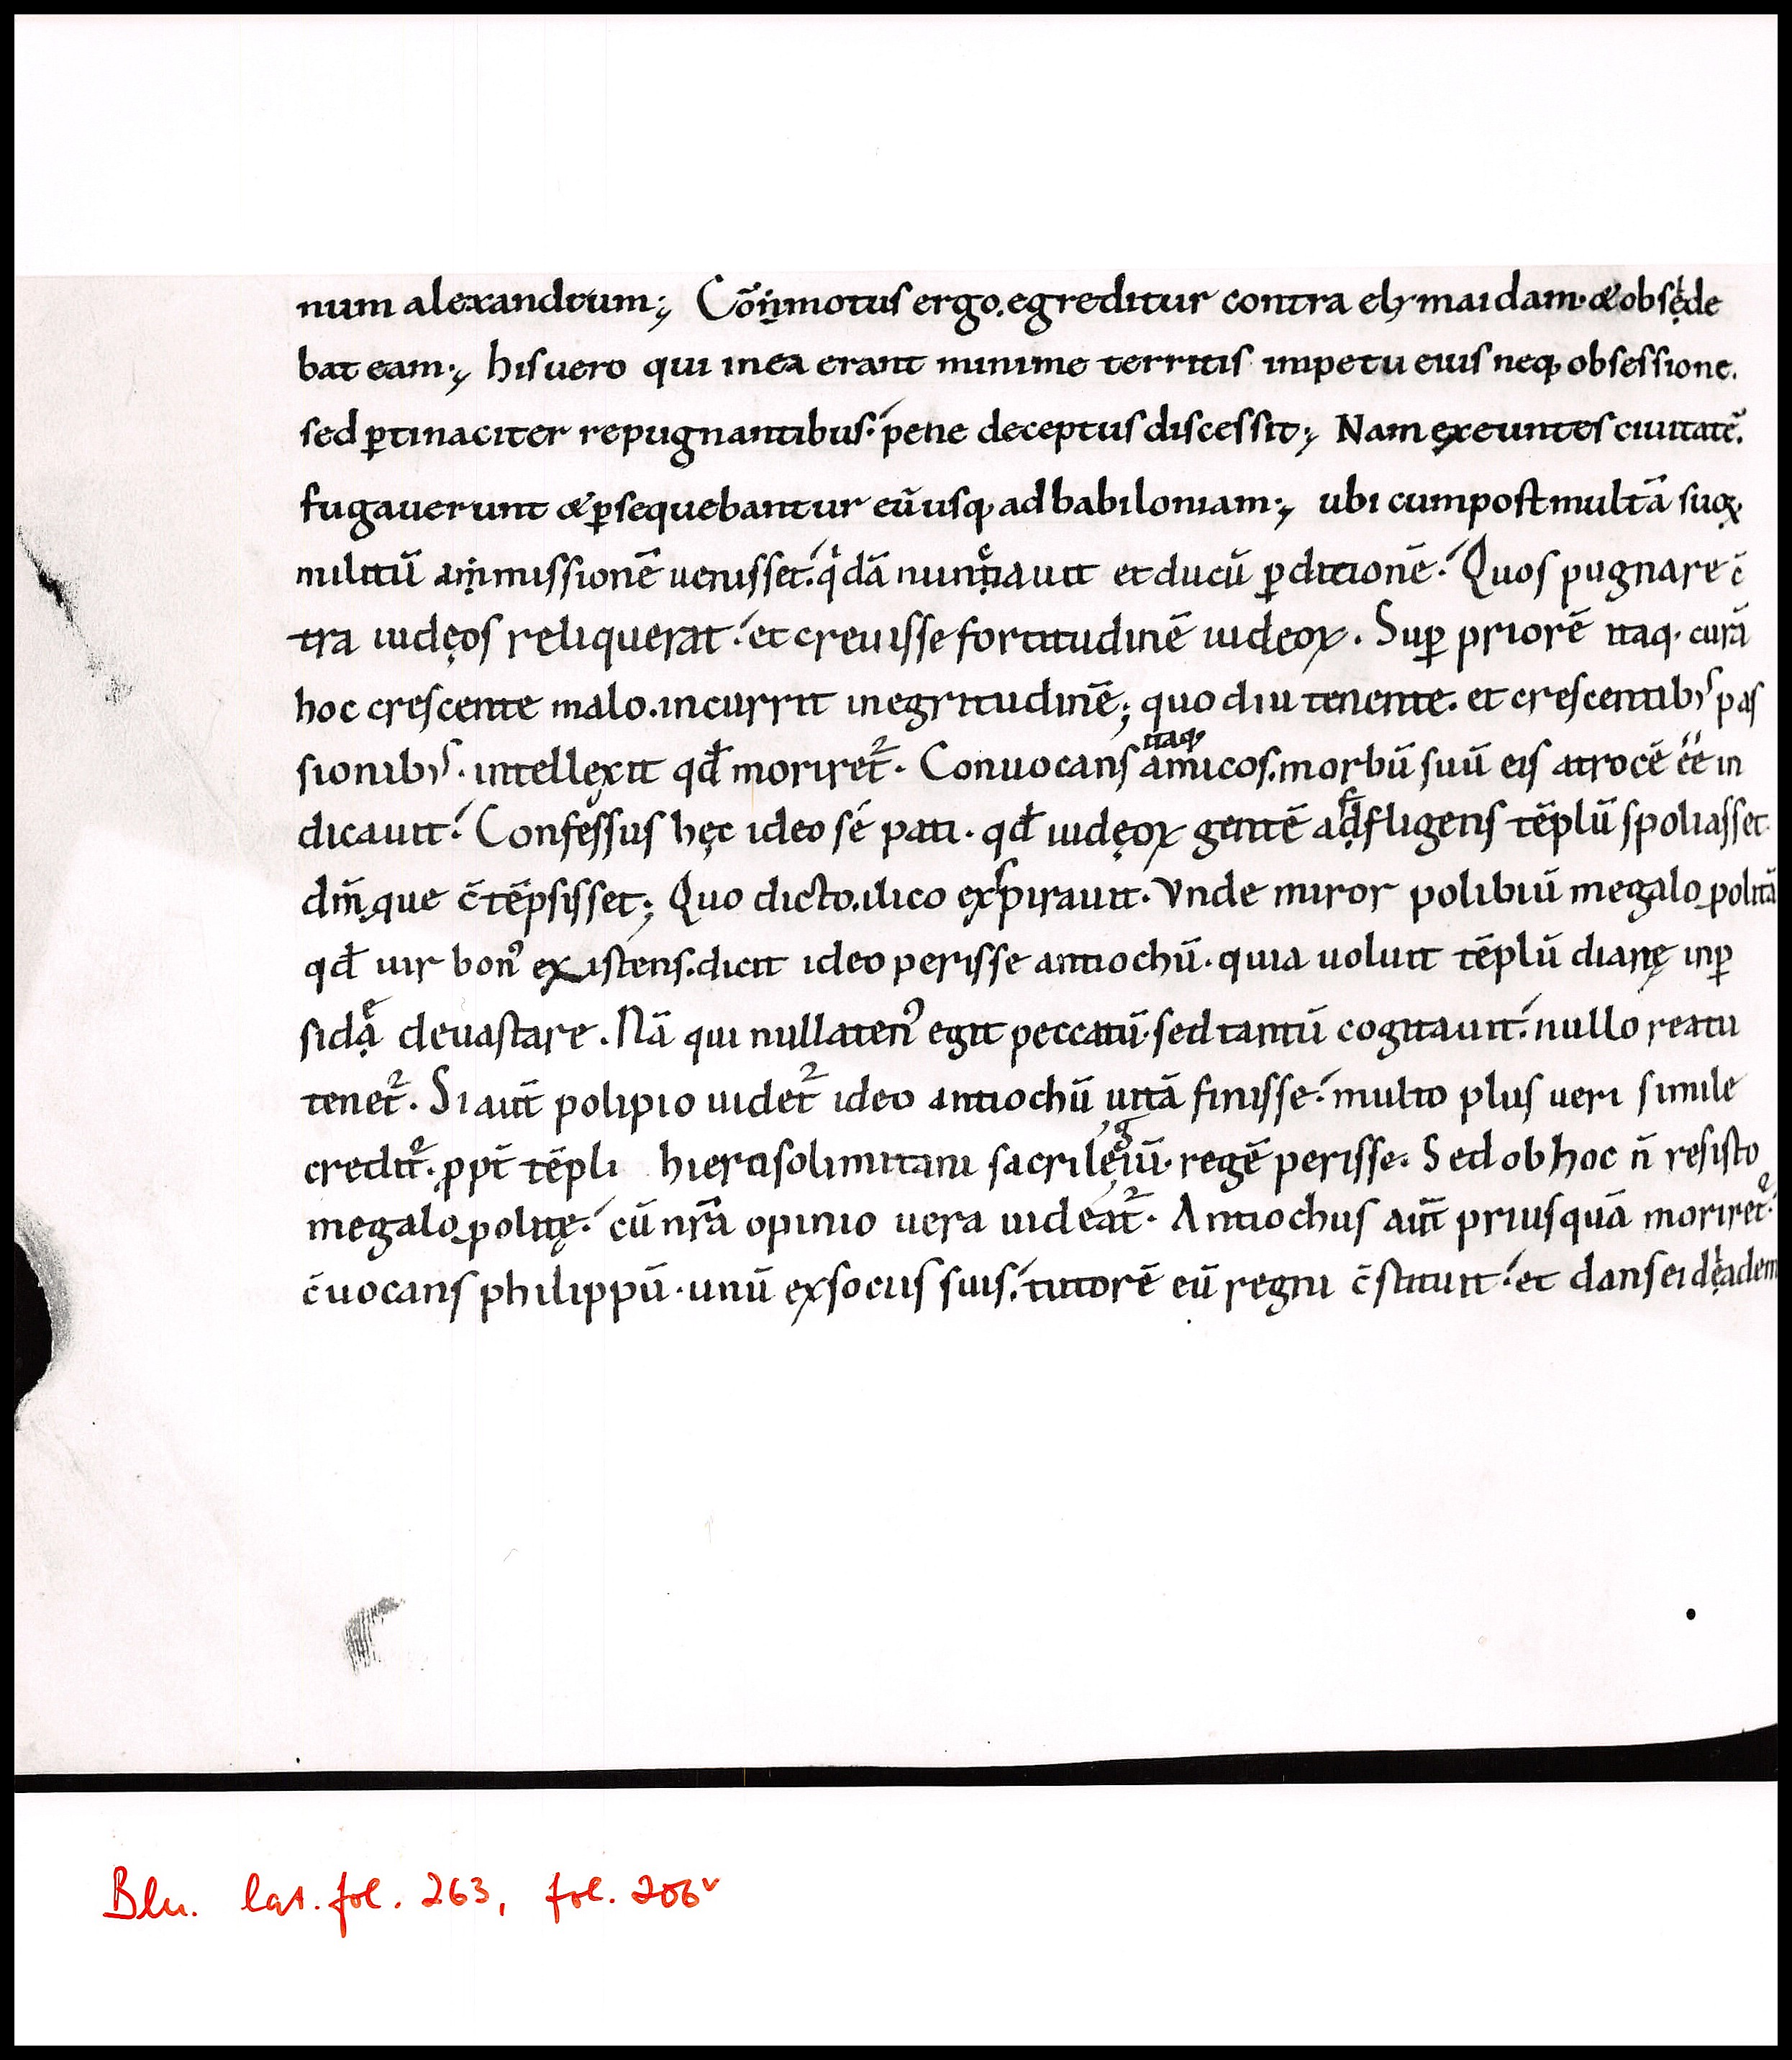 num alexandrum; Cōnmotus ergo. egreditur contra elymaidam. & obsede
bat eam; his uero qui in ea erant minime territis impetu eius neq; obsessione.
sed ꝑtinaciter repugnantibus. pene deceptus discessit; Nam exeuntes ciuitatē.
fugauerunt & ꝑsequebantur eū usq; ad babiloniam; ubi cum post multā suoꝝ
militū ammissionē uenisset. qidā nuntiauit et ducū ꝑditionē. Quos pugnare c̄
tra iudęos reliquerat. et creuisse fortitudinē iudeoꝝ. Suꝑ priorē itaq; curā
hoc crescente malo. incurrit in egritudinē; quo diu tenente. et crescentibꝰ pas
sionibꝰ. intellexit qđ moriret᷑. Conuocans itaq; amicos. morbū suū eis atrocē ēē in
dicauit. Confessus hęc ideo sé pati. qđ iudęoꝝ gentē adfligens tēplū spoliasset
dm̄que c̄tēpsisset; Quo dicto. ilico exspirauit. Vnde miror polibiū megalopolitā
qđ uir bonꝰ existens. dicit ideo perisse antiochū. quia uoluit tēplū dianę in ꝑ
sida deuastare. Nā qui nullatenꝰ egit peccatū. sed tantū cogitauit. nullo reatu
tenet᷑. Si aut̄ polipio uidet᷑ ideo antiochū uitā finisse. multo plus ueri simile
credit᷑. ꝓpt̄ tēpli hierosolimitani sacrilegiū. regē perisse. Sed ob hoc n̄ resisto
megalopolitę. cū nr̄a opinio uera uideat᷑. Antiochus aut̄ priusquā moriret᷑.
c̄uocans philippū. unū ex sociis suis. tutorē eū regni c̄stituit. et dans ei diadem
Bln. lat. fol. 263, fol. 206v